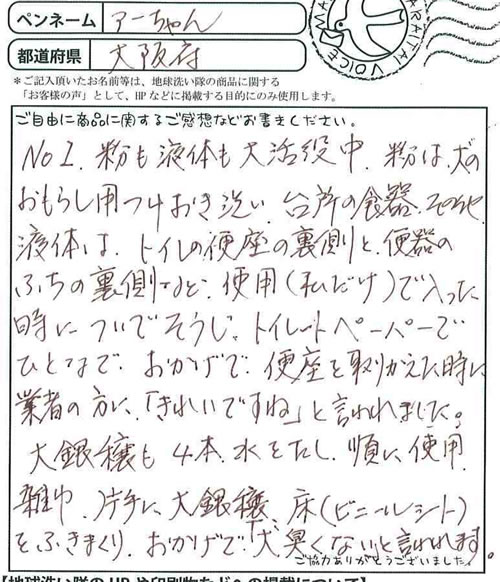 ペンネーム アーちゃん
都道府県 大阪府
VOICE
*ご記入頂いたお名前等は、地球洗い隊の商品に関する
「お客様の声」として、HPなどに掲載する目的にのみ使用します。
ご自由に商品に関するご感想などお書きください。
No1. 粉も液体も大活役中. 粉は、犬の
おもらし用つけおき洗い. 台所の食器. その他.
液体は、トイレの便座の裏側と、便器の
ふちの裏側など、使用(私だけ)で入った
時に ついでそうじ、トイレットペーパーで
ひとなで. おかげで、便座を取りかえた時に
業者の方に、「きれいですね」と言われました。
大銀穣も 4本. 水をたし. 順に、使用.
雑巾. 片手に、大銀穣、床(ビニールシート)
をふきまくり. おかげで「犬臭くない」と言われます。
ご協力ありがとうございました。